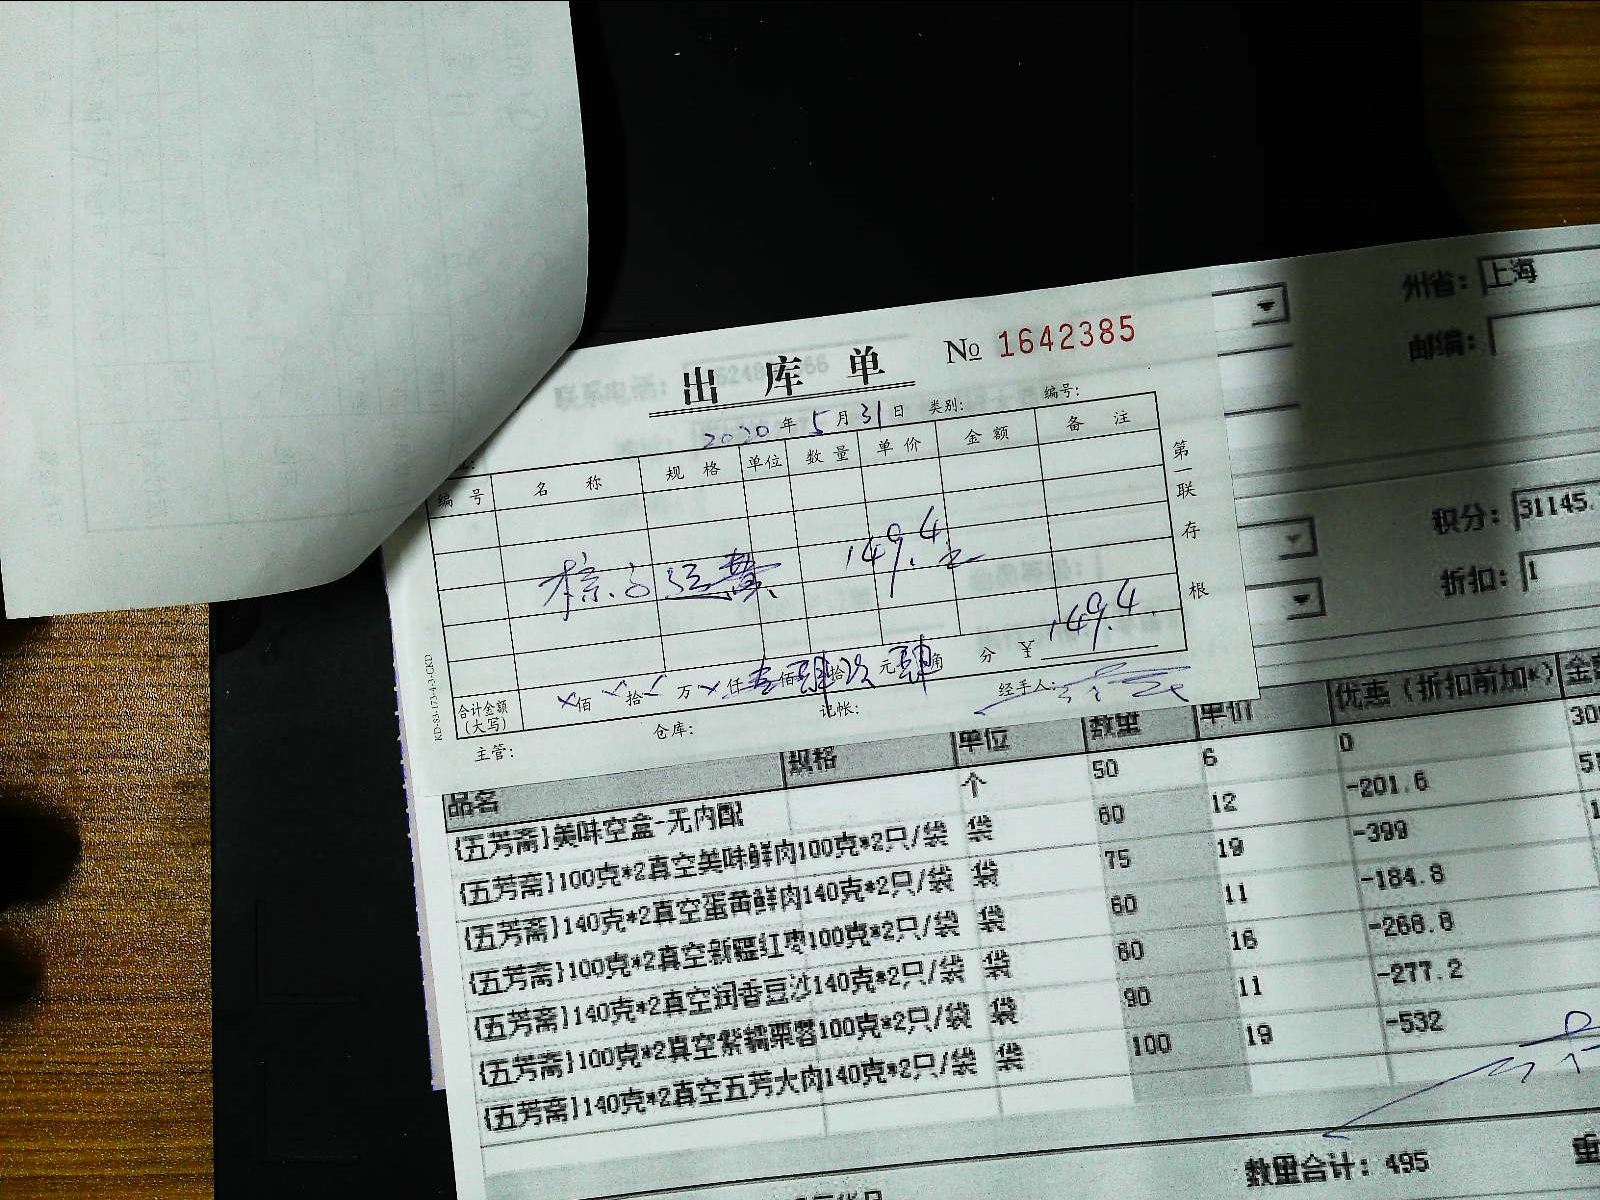 州省: 上海
邮编:
出 库 单 № 1642385
2020 年 5 月 31 日 类别: 编号:
编 号 名 称 规 格 单位 数 量 单 价 金 额 备 注
粽子运费 149.4元
合计金额(大写) ×佰 ×拾 × 万 × 仟 壹 佰 肆 拾 玖 元 肆 角 分 ¥ 149.4
主管: 仓库: 记帐: 经手人:
第一联 存根
KD-SJ-173-4-3-CKD
积分: 31145.
折扣: 1
品名 规格 单位 数量 单价 优惠（折扣前加*） 金
{五芳斋}美味空盒-无内配 个 50 6 0 30
{五芳斋}100克*2真空美味鲜肉100克*2只/袋 袋 60 12 -201.6 51
{五芳斋}140克*2真空蛋黄鲜肉140克*2只/袋 袋 75 19 -399 1
{五芳斋}100克*2真空新疆红枣100克*2只/袋 袋 60 11 -184.8
{五芳斋}140克*2真空润香豆沙140克*2只/袋 袋 60 16 -268.8
{五芳斋}100克*2真空紫糯栗蓉100克*2只/袋 袋 90 11 -277.2
{五芳斋}140克*2真空五芳大肉140克*2只/袋 袋 100 19 -532
数里合计: 495